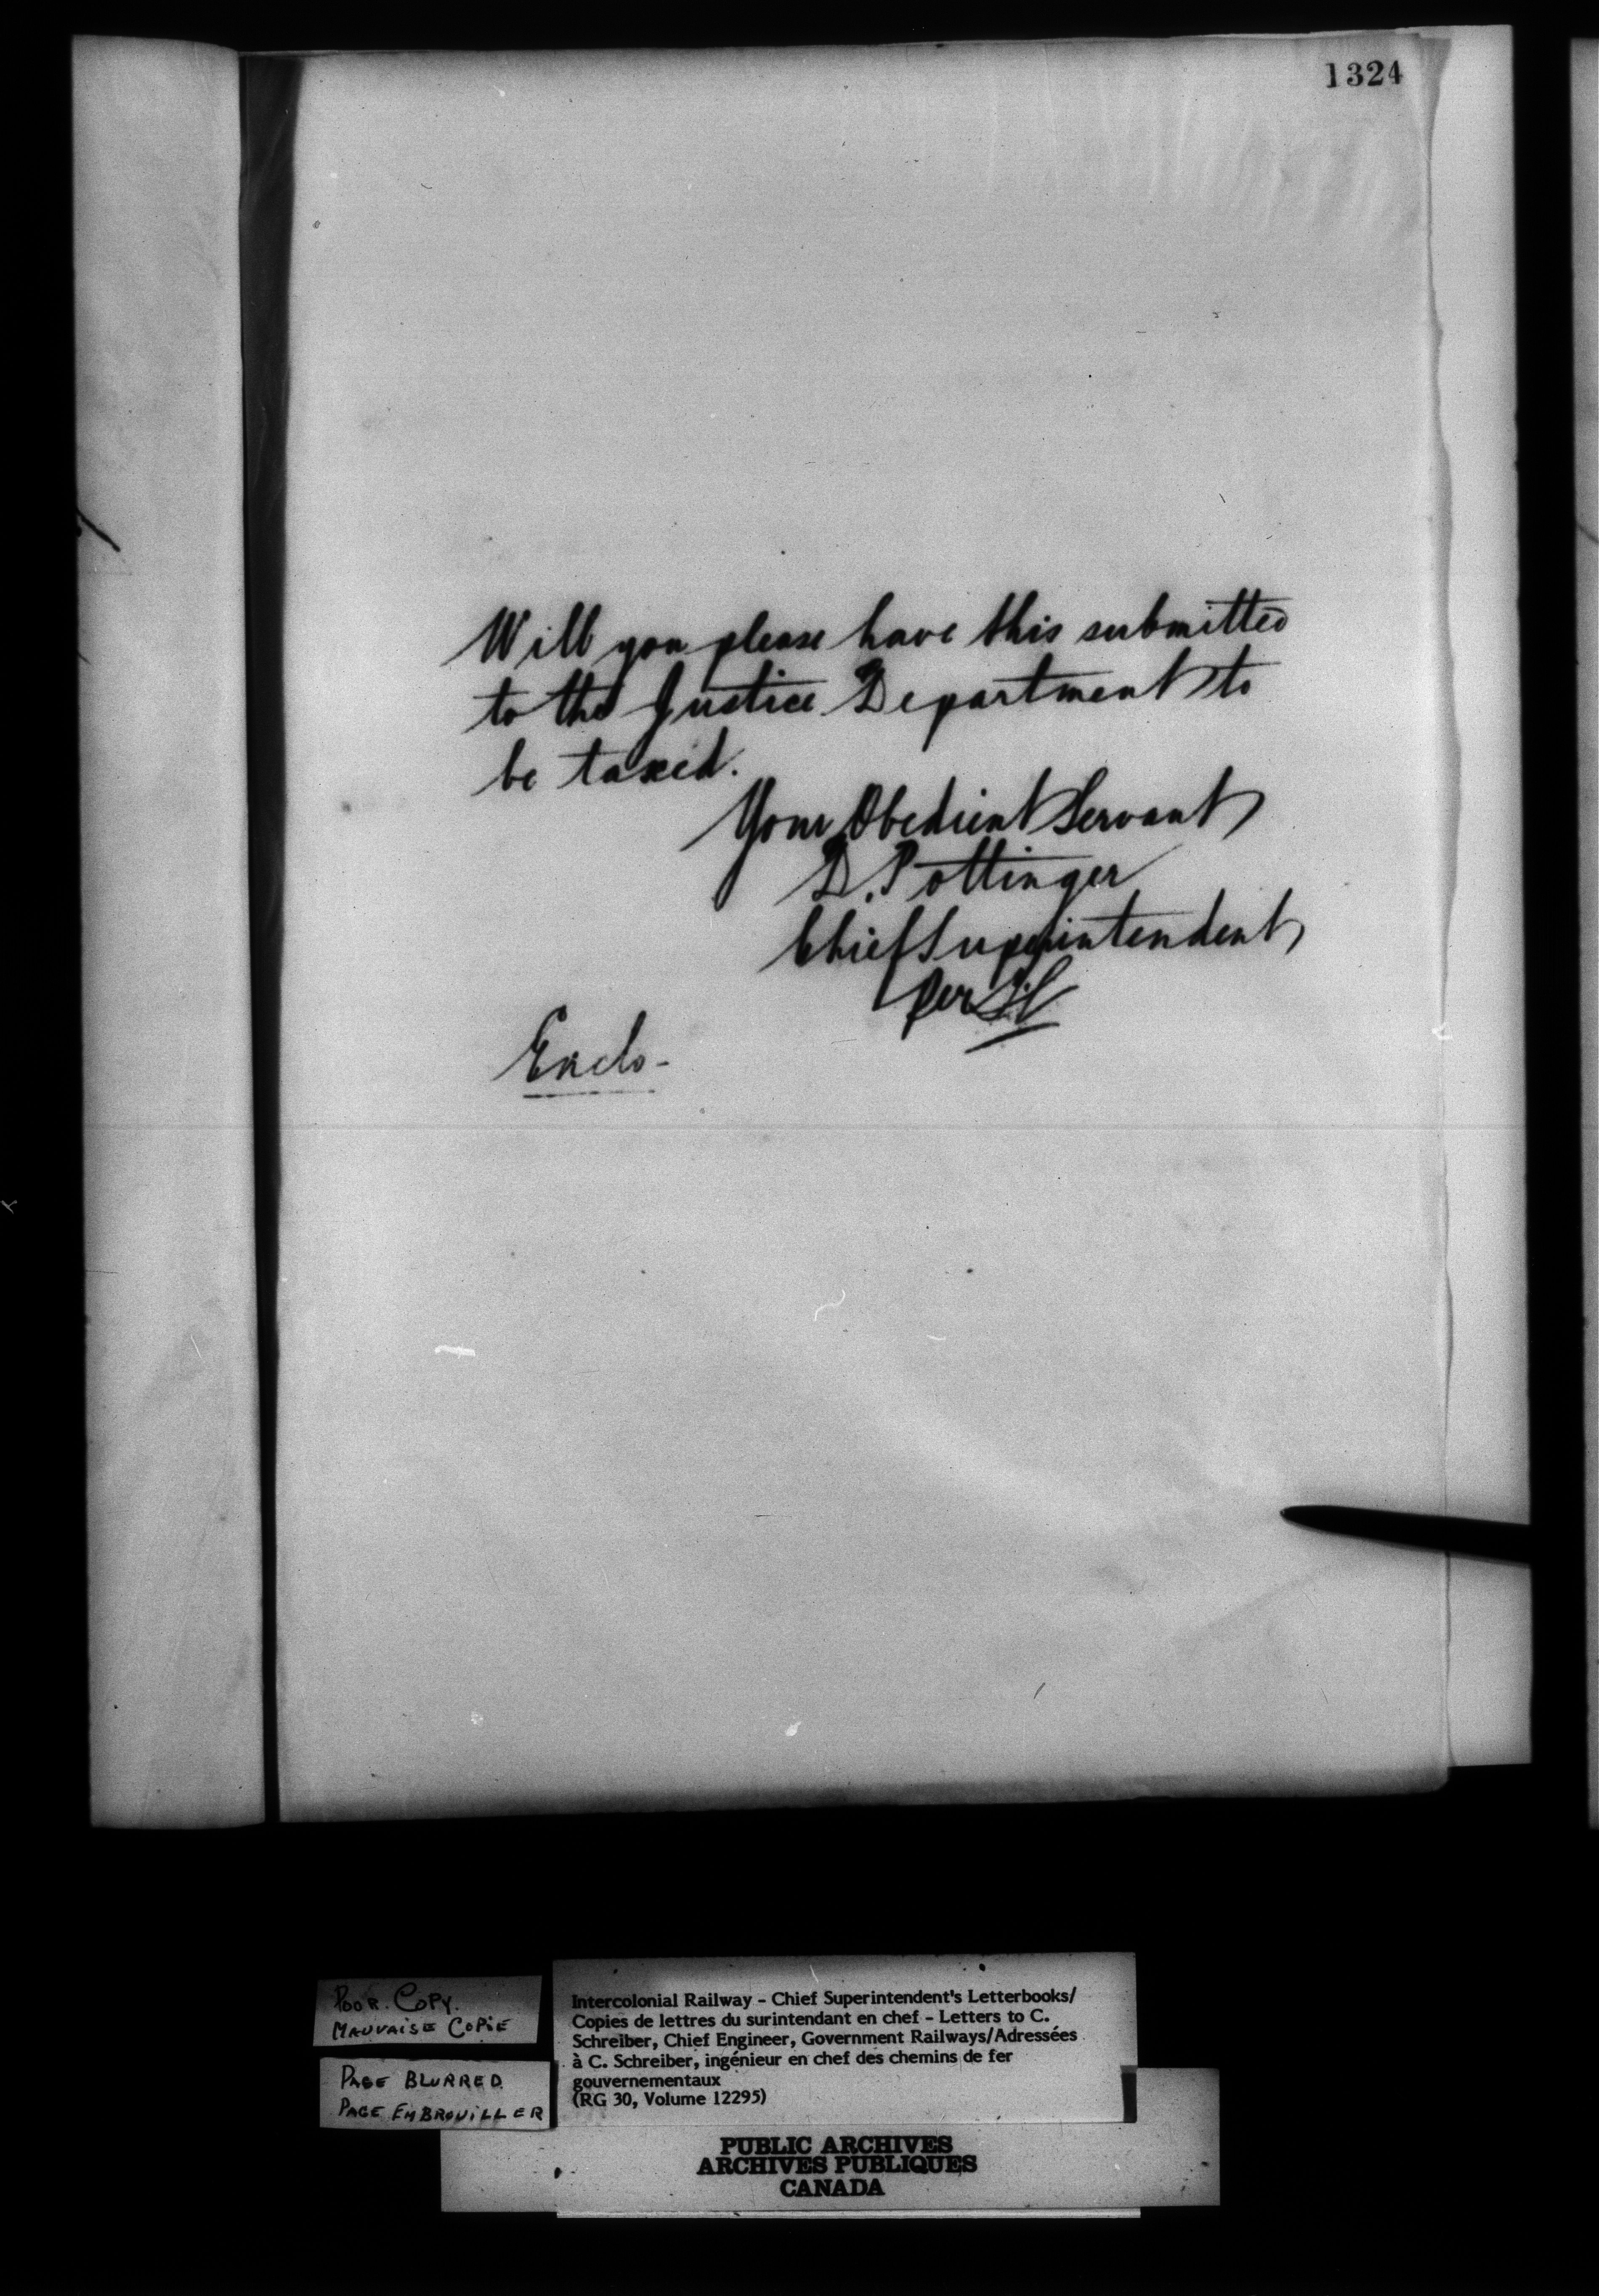 1324
Will you please have this submitted
to the Justice Department to
be taxed.
Your Obedient Servant
D. Pottinger
Chief Superintendent
Per
Enclo-
POOR COPY.
MAUVAISE COPIE
PAGE BLURRED
PAGE EMBROUILLER
Intercolonial Railway - Chief Superintendent's Letterbooks/
Copies de lettres du surintendant en chef - Letters to C.
Schreiber, Chief Engineer, Government Railways/Adressées
à C. Schreiber, ingénieur en chef des chemins de fer
gouvernementaux
(RG 30, Volume 12295)
PUBLIC ARCHIVES
ARCHIVES PUBLIQUES
CANADA